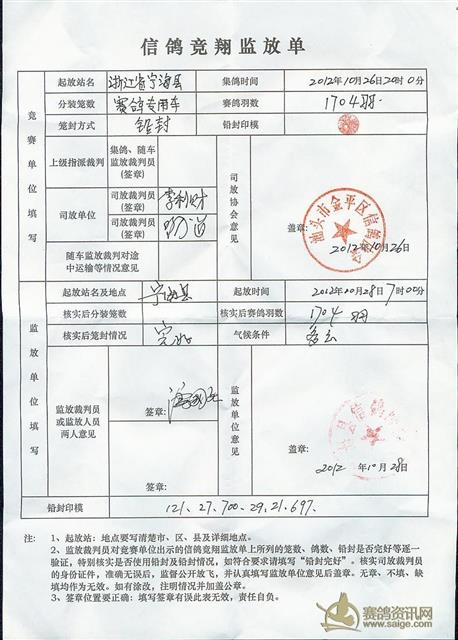 信鸽竞翔监放单
竞赛单位填写
起放站名 浙江省宁海县 集鸽时间 2012年10月26日20时0分
分装笼数 赛鸽专用车 赛鸽羽数 1704羽
笼封方式 铅封 铅封印模
上级指派裁判 集鸽、随车监放裁判员(签章)
司放单位 司放裁判员(签章) 李利财
司放裁判员(签章)
随车监放裁判对途中运输等情况意见
司放协会意见
汕头市金平区信鸽协会
盖章:
2012年10月26日
监放单位填写
起放站名及地点 宁海县 起放时间 2012年10月28日7时00分
核实后分装笼数 核实后赛鸽羽数 1704羽
核实后笼封情况 完好 气候条件 多云
监放裁判员或监放人员两人意见
签章:
签章:
监放单位意见
盖章:
2012年10月28日
铅封印模 121、27、700、29、21、697、
注: 1、起放站:地点要写清楚市、区、县及详细地点。
2、监放裁判员对竞赛单位出示的信鸽竞翔监放单上所列的笼数、鸽数、铅封是否完好等逐一
验证,特别核实是否使用铅封及铅封情况,如符合要求请填写“铅封完好”。核实司放裁判员
的身份证件,准确无误后,监督公开放飞,并认真填写监放单位意见后盖章。无章、不填、缺
填均作为无效。如有涂改,注明情况并加盖公章。
3、签章位置要正确:填写签章有误此表无效,责任自负。
赛鸽资讯网
www.saige.com